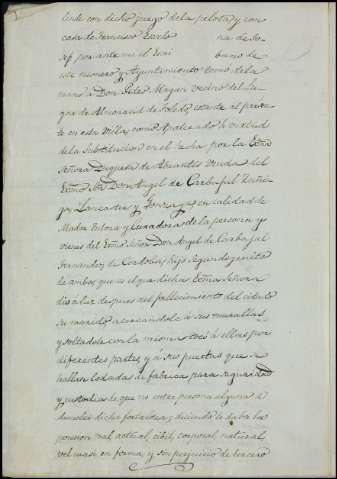 linde con dicho juego de la pelota y con
casa de Francisco
y por ante mi el
este numero y Ayuntamiento tomó de la
mano a Don Gil Magan vecino del Lu
gar de Almonacid de Toledo, estante al presen
te en esta Villa, como Apoderado en virtud
de la Substitucion en el hecha por la Exma
Señora Duquesa de Abrantes Viuda del
Exmo Sor Don Angel de Carbajal Zuñi
ga, Lancaster y Gonzaga, en calidad de
Madre Tutora y Curadora de la persona y
vienes del Exmo Señor Don Angel de Carbajal
Fernandez de Cordoba, hijo segundogenito
de ambos, que es el que dicha Exma Señora
dio a luz despues del fallecimiento del citado
su marido acercandole a sus murallas,
y soltadole con la misma tocó a ellas por
diferentes partes, y a sus puertas que se
hallan de fabrica para seguridad
y custodia de que no entre persona alguna a
dicha fortaleza, y diciendo le daba la
posesion real, actual, cibil, corporal, natural
vel quasi en forma, y sin perjuicio de tercero